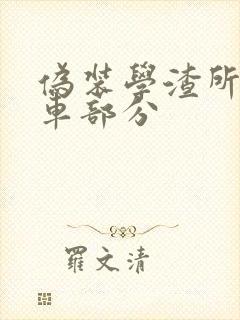 偽裝學渣所
車部分
羅文清